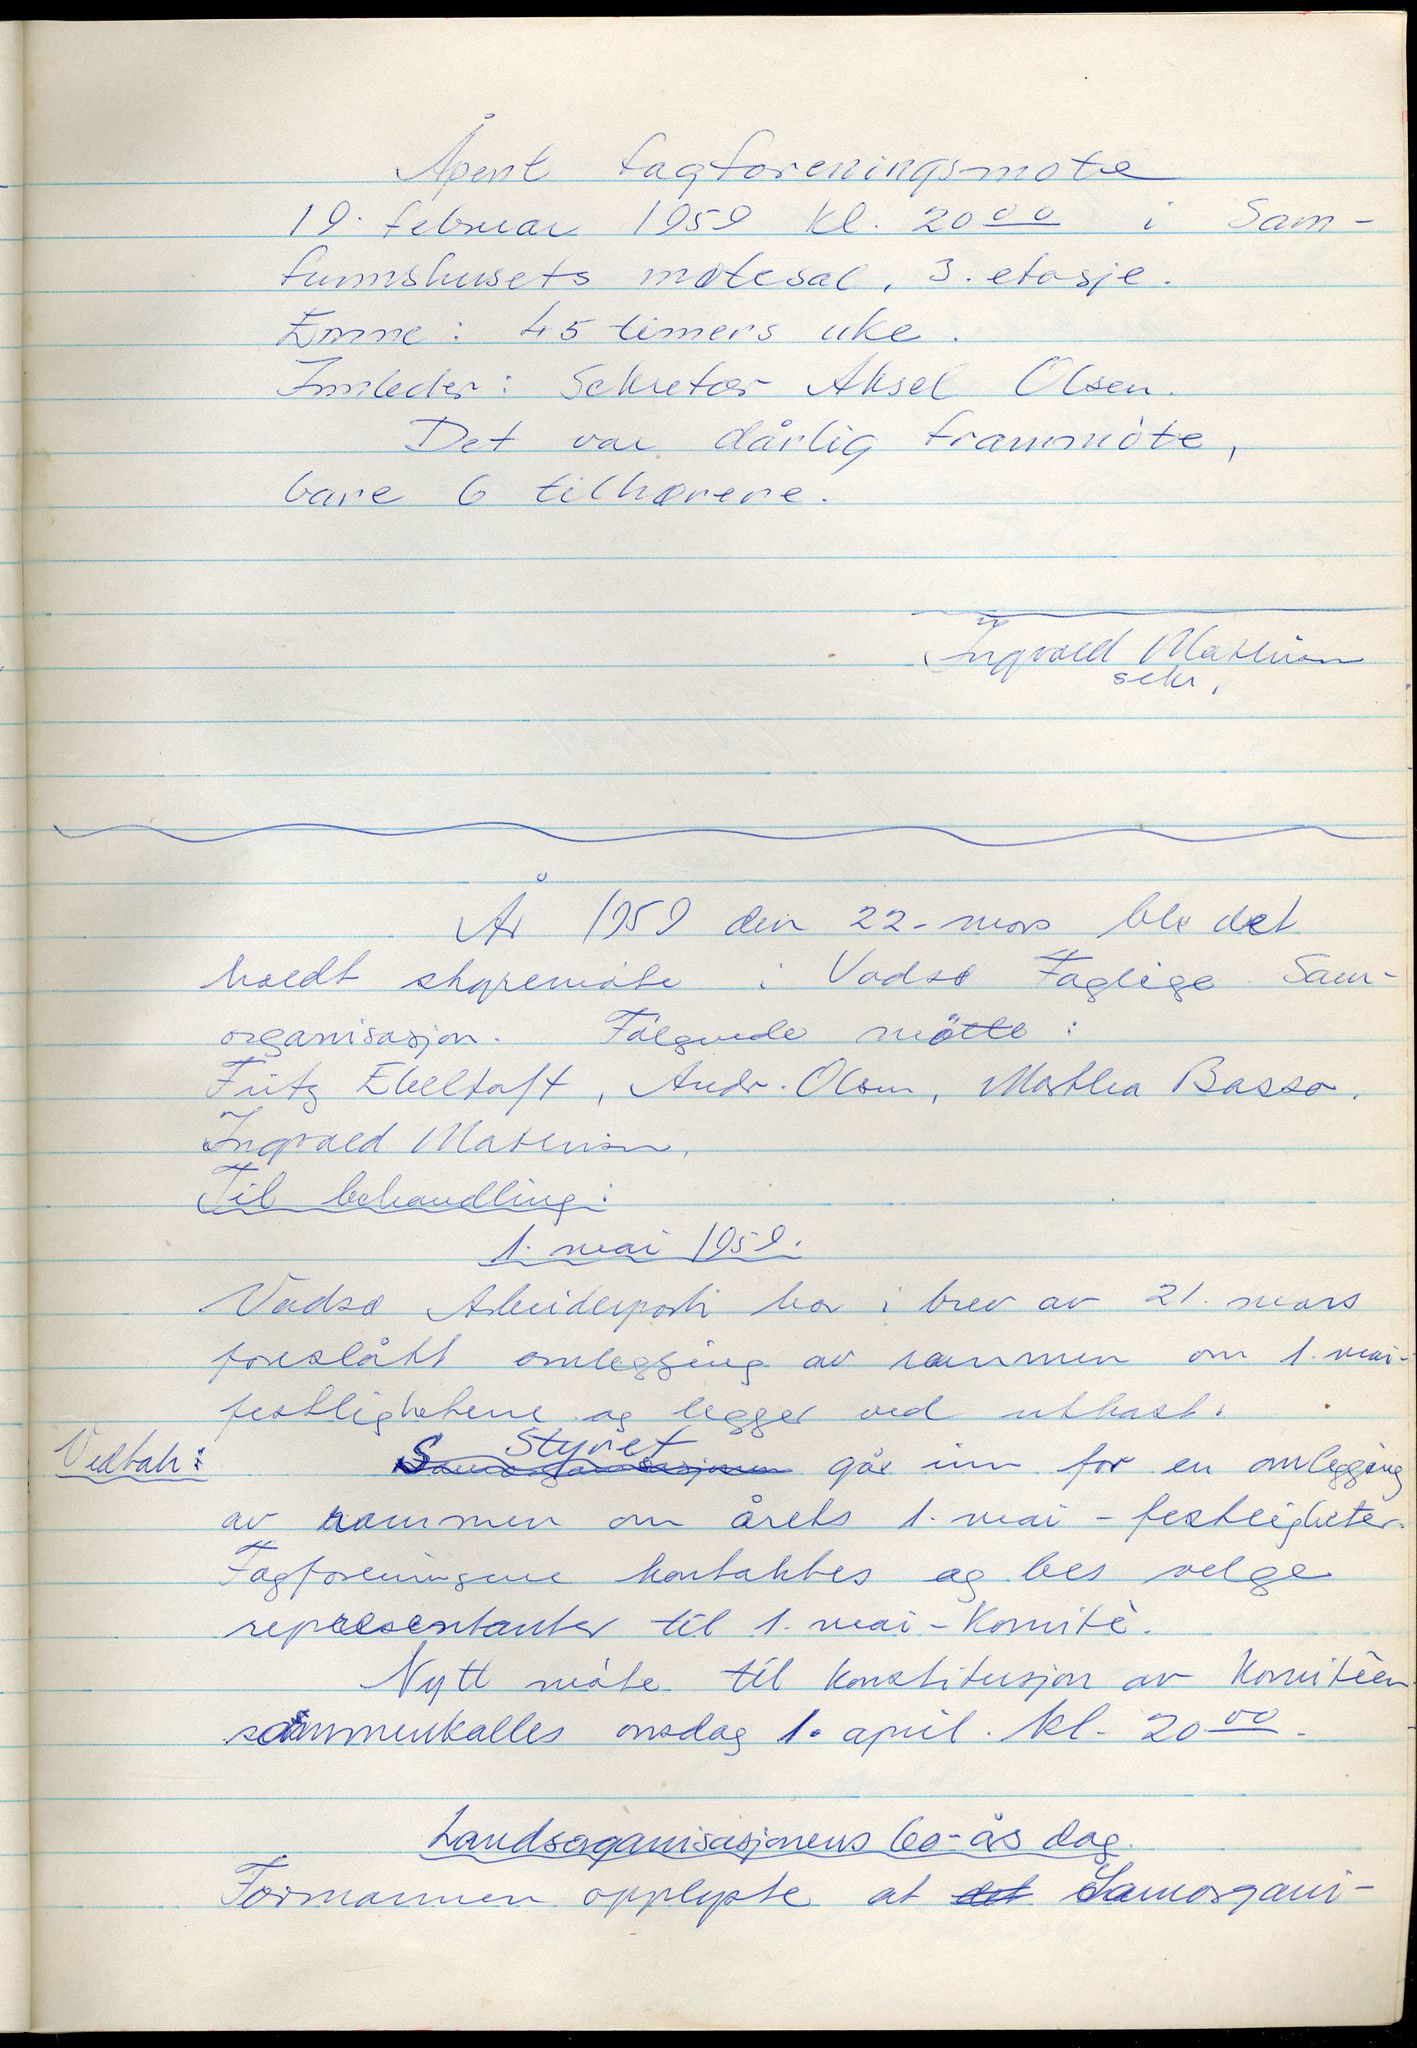 Åpent fagforeningsmøte
19. februar 1959 kl. 20 00 i Sam-
funnshusets møtesal, 3. etasje.
Emne: 45 timers uke.
Innleder: Sekretær Aksel Olsen.
Det var dårlig frammöte,
bare 6 tilhørere.
Ingvald Mathisen
sekr.
År 1959 den 22. mars ble det
holdt styremöte i Vadsø Faglige Sam-
organisasjon. Følgende møtte:
Fritz Ebeltoft, Andr. Olsen, Marthea Basso.
Ingvald Mathisen.
Til behandling:
1. mai 1959.
Vadsø Arbeiderparti har i brev av 21. mars
foreslått omlegging av rammen om 1. mai-
festlighetene og legger ved utkast.
Vedtak: Samorganisasjonen Styret går inn for en omlegging
av rammen om årets 1. mai-festligheter.
Fagforeningene kontaktes og bes velge
representanter til 1. mai-Komitè.
Nytt möte til konstitusjon av Komitèen
sammenkalles onsdag 1. april. kl. 20 00.
Landsorganisasjonens 60-års dag.
Formannen opplyste at det Samorgani-